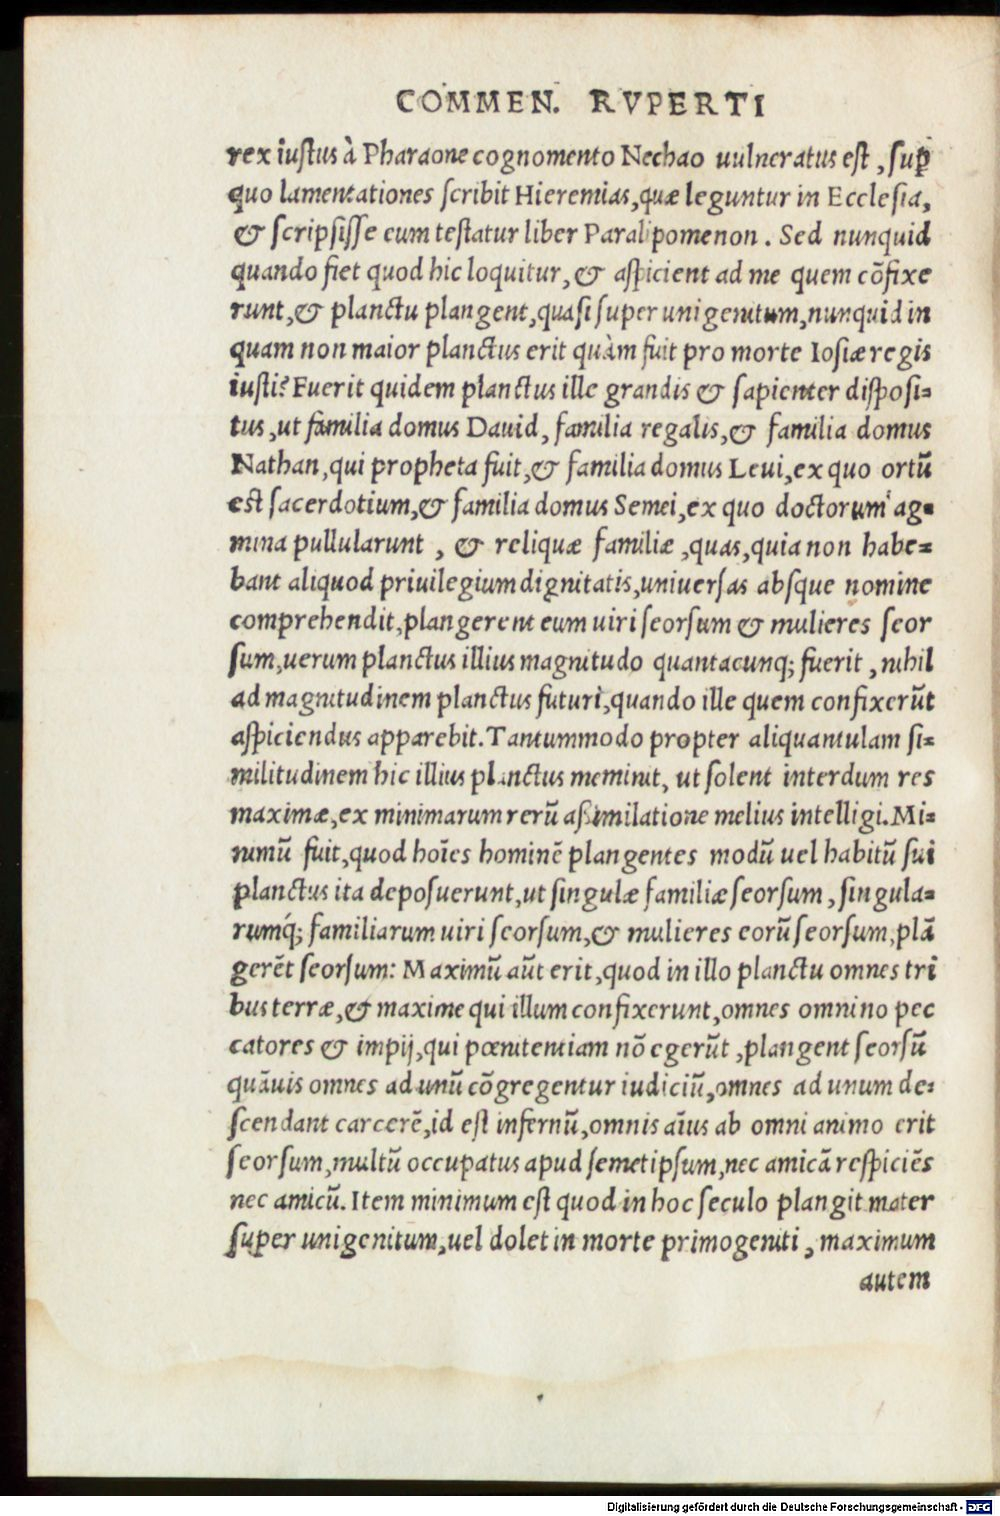 COMMEN. RVPERTI
rex iustus à Pharaone cognomento Nechao uulneratus est, sup̄
quo lamentationes scribit Hieremias, quæ leguntur in Ecclesia,
& scripsisse eum testatur liber Paralipomenon. Sed nunquid
quando fiet quod hic loquitur, & aspicient ad me quem cōfixe
runt, & planctu plangent, quasi super unigenitum, nunquid in
quam non maior planctus erit quàm fuit pro morte Iosiæ regis
iusti? Fuerit quidem planctus ille grandis & sapienter disposi=
tus, ut familia domus Dauid, familia regalis, & familia domus
Nathan, qui propheta fuit, & familia domus Leui, ex quo ortū
est sacerdotium, & familia domus Semei, ex quo doctorum ag=
mina pullularunt, & reliquæ familiæ, quas, quia non habe=
bant aliquod priuilegium dignitatis, uniuersas absque nomine
comprehendit, plangerent eum uiri seorsum & mulieres seor
sum, uerum planctus illius magnitudo quantacunq; fuerit, nihil
ad magnitudinem planctus futuri, quando ille quem confixerūt
aspiciendus apparebit. Tantummodo propter aliquantulam si=
militudinem hic illius planctus meminit, ut solent interdum res
maximæ, ex minimarum rerū assimilatione melius intelligi. Mi=
nimū fuit, quod hoīes hominē plangentes modū uel habitū sui
planctus ita deposuerunt, ut singulæ familiæ seorsum, singula=
rumq́; familiarum uiri seorsum, & mulieres eorū seorsum, plā
gerēt seorsum: Maximū aūt erit, quod in illo planctu omnes tri
bus terræ, & maxime qui illum confixerunt, omnes omnino pec
catores & impij, qui pœnitentiam nō egerūt, plangent seorsū
quāuis omnes ad unū cōgregentur iudiciū, omnes ad unum de=
scendant carcerē, id est infernū, omnis aīus ab omni animo erit
seorsum, multū occupatus apud semetipsum, nec amicā respiciēs
nec amicū. Item minimum est quod in hoc seculo plangit mater
super unigenitum, uel dolet in morte primogeniti, maximum
autem
Digitalisierung gefördert durch die Deutsche Forschungsgemeinschaft - DFG